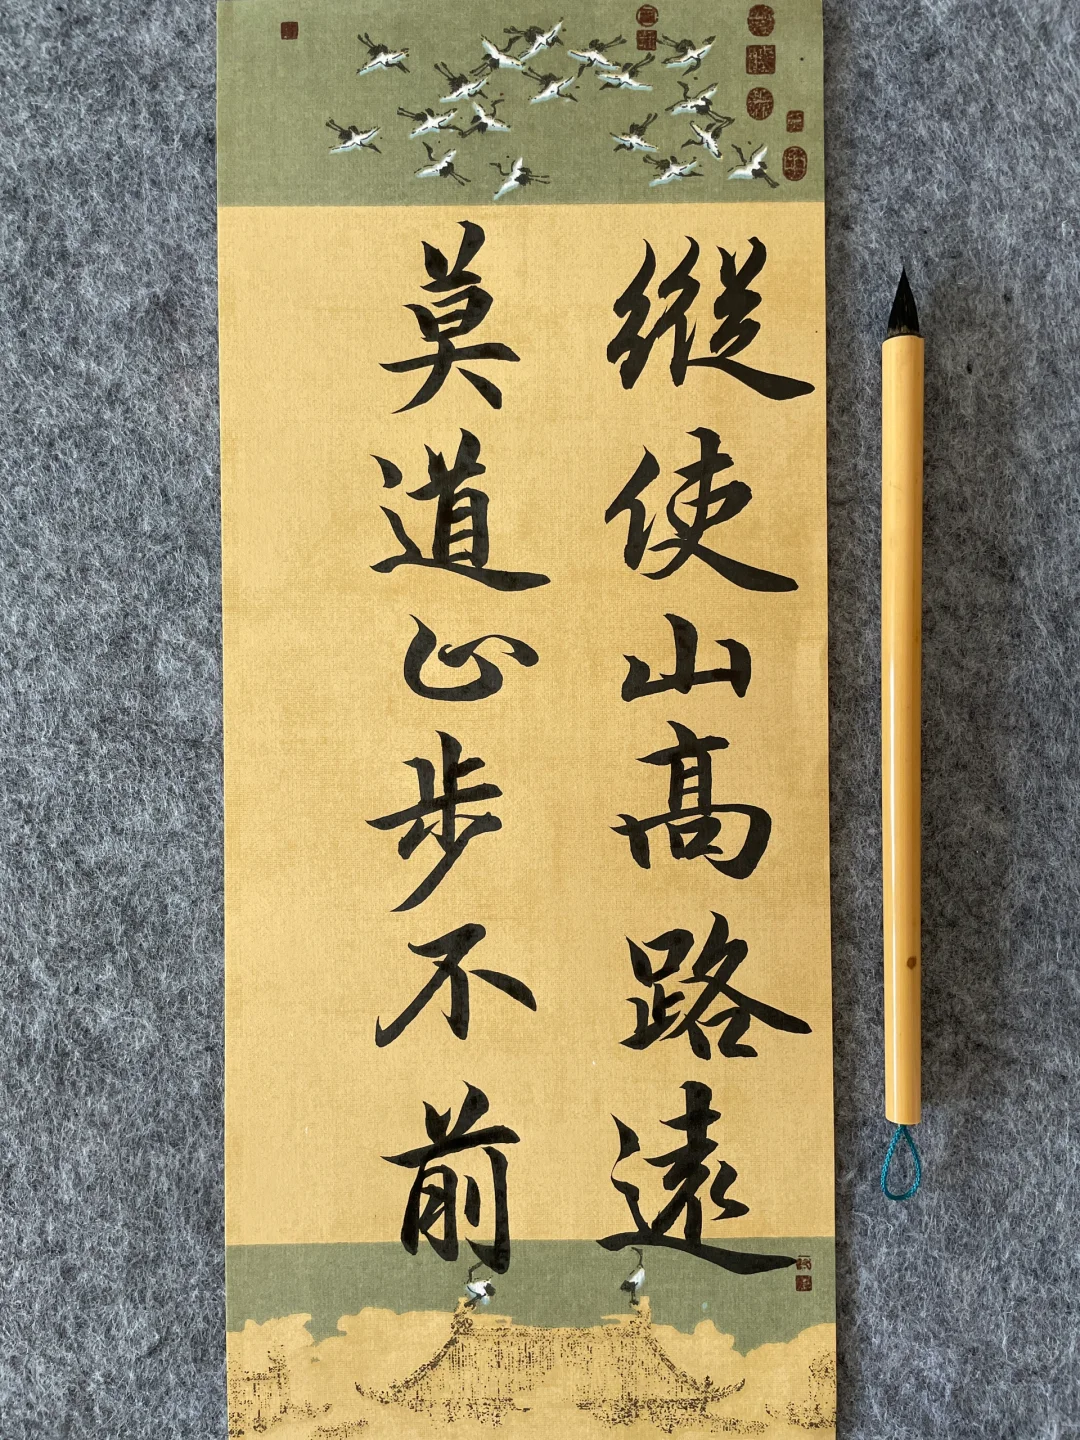 縱使山高路遠
莫道止步不前